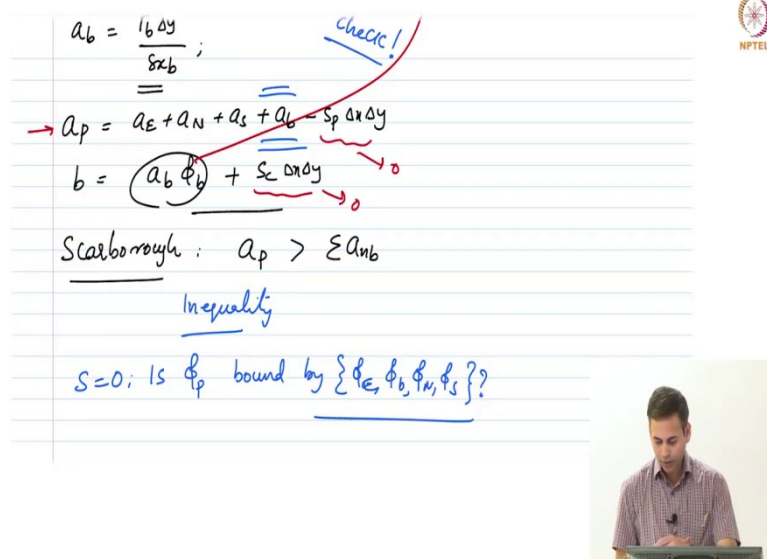 a_b = Γ_b Δy / δx_b ;
check!
NPTEL
→ a_P = a_E + a_N + a_S + a_b - S_P Δx Δy → 0
b = a_b ϕ_b + S_C Δx Δy → 0
Scarborough : a_P > Σ a_nb
Inequality
S=0; Is ϕ_P bound by {ϕ_E, ϕ_b, ϕ_N, ϕ_S}?